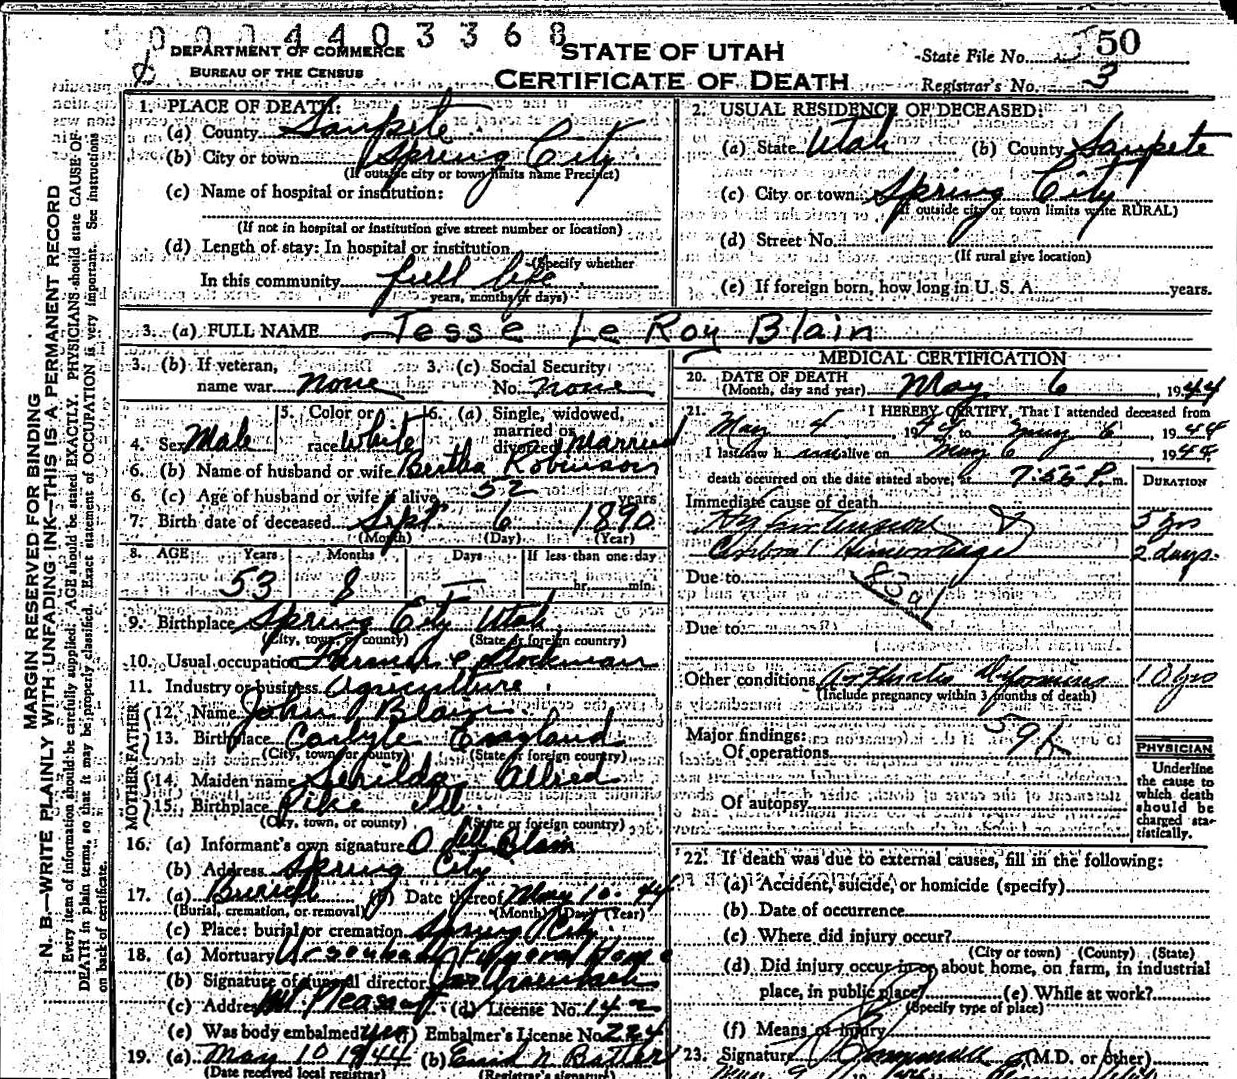 0 0 0 4 4 0 3 3 6 8
DEPARTMENT OF COMMERCE
BUREAU OF THE CENSUS
STATE OF UTAH
CERTIFICATE OF DEATH
State File No. 50
Registrar's No. 3
MARGIN RESERVED FOR BINDING
N. B.—WRITE PLAINLY WITH UNFADING INK—THIS IS A PERMANENT RECORD
Every item of information should be carefully supplied. AGE should be stated EXACTLY. PHYSICIANS should state CAUSE OF
DEATH in plain terms, so that it may be properly classified. Exact statement of OCCUPATION is very important. See instructions
on back of certificate.
1. PLACE OF DEATH:
(a) County Sanpete
(b) City or town Spring City
(If outside city or town limits name Precinct)
(c) Name of hospital or institution:
(If not in hospital or institution give street number or location)
(d) Length of stay: In hospital or institution
(Specify whether
In this community full life
years, months or days)
2. USUAL RESIDENCE OF DECEASED:
(a) State Utah (b) County Sanpete
(c) City or town Spring City
(If outside city or town limits write RURAL)
(d) Street No.
(If rural give location)
(e) If foreign born, how long in U. S. A. years.
3. (a) FULL NAME Jesse Le Roy Blain
3. (b) If veteran, name war none
3. (c) Social Security No. none
4. Sex Male
5. Color or race White
6. (a) Single, widowed, married or divorced Married
6. (b) Name of husband or wife Bertha Robinson
6. (c) Age of husband or wife if alive 52 years
7. Birth date of deceased Sept 6 1890
(Month) (Day) (Year)
8. AGE Years Months Days If less than one day
53 8 — hr. min.
9. Birthplace Spring City Utah
(City, town, or county) (State or foreign country)
10. Usual occupation Farmer & Stockman
11. Industry or business Agriculture
FATHER
12. Name John Blain
13. Birthplace Carlyle England
(City, town or county) (State or foreign country)
MOTHER
14. Maiden name Serilda Allred
15. Birthplace Pike Ill
(City, town, or county) (State or foreign country)
16. (a) Informant's own signature O dell Blain
(b) Address Spring City
17. (a) Burial (b) Date thereof May 10 44
(Burial, cremation, or removal) (Month) (Day) (Year)
(c) Place: burial or cremation Spring City
18. (a) Mortuary Ursenbach Funeral Home
(b) Signature of funeral director Ursenbach
(c) Address Mt Pleasant (d) License No. 142
(e) Was body embalmed? yes (f) Embalmer's License No. 224
19. (a) May 10 1944 (b) Enid N
(Date received local registrar) (Registrar's signature)
MEDICAL CERTIFICATION
20. DATE OF DEATH
(Month, day and year) May 6, 1944
21. I HEREBY CERTIFY, That I attended deceased from
May 4, 1944 to May 6, 1944
I last saw him alive on May 6 1944
death occurred on the date stated above, at 7:55 P. m.
DURATION
Immediate cause of death
Hypertension 5 yrs
Cerebral Hemorrhage 2 days
Due to 83a
Due to
Other conditions Arthritis Deformans 10 yrs
(Include pregnancy within 3 months of death)
Major findings: 59b
Of operations
Of autopsy
PHYSICIAN
Underline
the cause to
which death
should be
charged sta-
tistically.
22. If death was due to external causes, fill in the following:
(a) Accident, suicide, or homicide (specify)
(b) Date of occurrence
(c) Where did injury occur?
(City or town) (County) (State)
(d) Did injury occur in or about home, on farm, in industrial
place, in public place? (e) While at work?
(Specify type of place)
(f) Means of injury
23. Signature (M.D. or other)